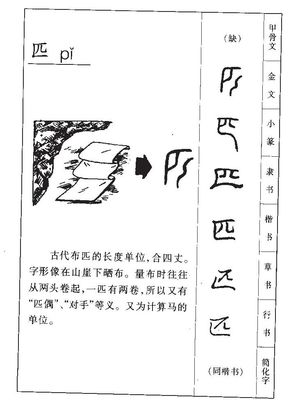 匹 pǐ
古代布匹的长度单位,合四丈。
字形像在山崖下晒布。量布时往往
从两头卷起,一匹有两卷,所以又有
“匹偶”、“对手”等义。又为计算马的
单位。
(缺)
匹
匹
匹
匹
匹
匹
(同楷书)
甲骨文
金文
小篆
隶书
楷书
草书
行书
简化字